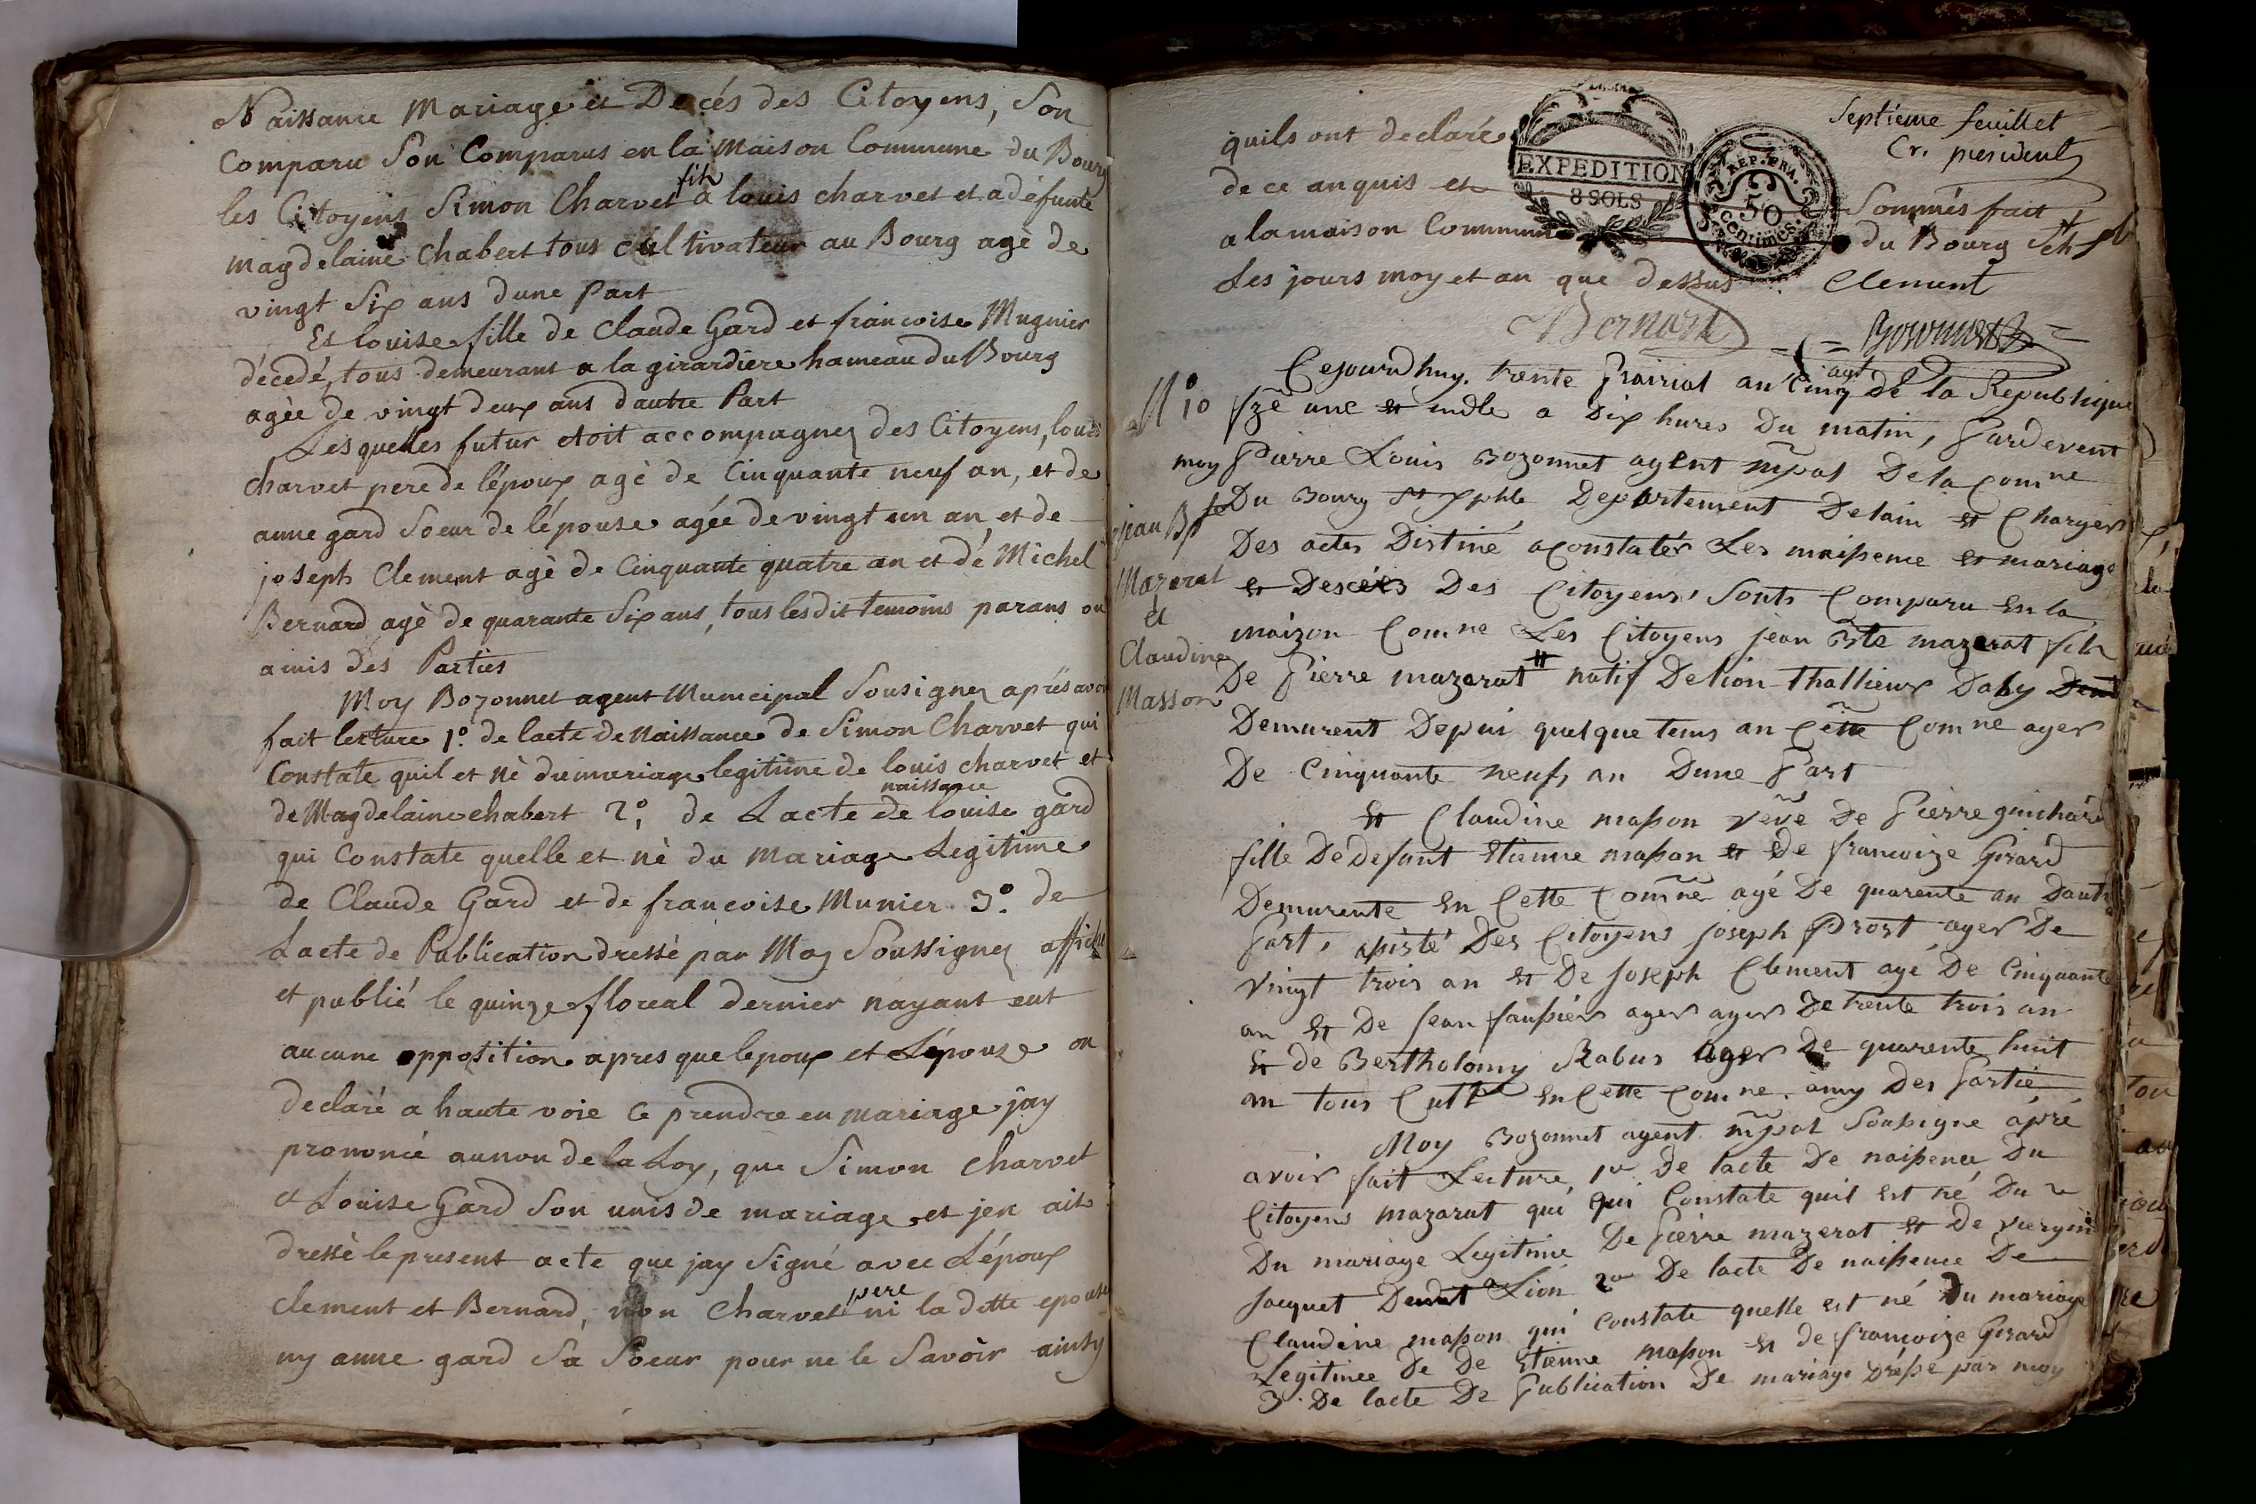 Naissance Mariage et Decés des Citoyens, Son
Comparu Son Comparus en la Maison Commune du Bourg
les Citoyens Simon Charvet fils a louis charvet et a défunte
magdelaine Chabert tous cultivateur au Bourg agè de
vingt Six ans dune Part
Et louise fille de Claude Gard et francoise Mugnier
décedé, tous demeurant a la girardiere hameau du Bourg
agèe de vingt deux ans dautre Part
Lesquelles futur etoit accompagnez des Citoyens, louis
charvet pere de l'époux agè de Cinquante neuf an, et de
anne gard Soeur de lépouse agée de vingt un an et de
joseph Clement agè de Cinquante quatre an et dé Michel
Bernard agè de quarante Six ans, tous lesdit temoins parans ou
amis des Parties
Moy Bozonnet agent Municipal Sousignez aprés avoir
fait lecture 1º. de lacte de Naissance de Simon Charvet qui
Constate quil et nè du mariage legitime de louis charvet et
de Magdelaine chabert 2º, de Lacte de naissance louise gard
qui Constate quelle et nè du Mariage Legitime
de Claude Gard et de francoise Munier 3º. de
Lacte de Publication dressè par Moy Soussignez affiché
et publié le quinze floreal dernier nayant eut
aucune opposition apres que lepoux et Lépouse on
declaré a haute voie ce prendre en mariage jay
prononcé aunon de la Loy, que Simon Charvet
et Louise Gard Son unis de mariage et jen ait
dressè le present acte que jay Signé avec Lépoux
Clement et Bernard, non Charvet pere ni la dette epouse
ny anne gard Sa Soeur pour ne le Savoir ainsy
quils ont declaré
de ce anquis et
a la maison Commune
Les jours moy et an que dessus
EXPEDITION
8 SOLS
REP. FRA.
50
Centimes.
Septieme feuillet
Cr. president
Sommés fait
du Bourg St
Clement
Bernard
Bozonnet
agt
Nº 10
jean Bte
Mazerat
et
Claudine
Masson
Cejourdhuy. trente prairial an Cinq De la Republique
fze une et indle a Dix hures Du matin, Pardevent
moy Pierre Louis Bozonnet agent mpal Dela Comne
Du Bourg St Xphle Departement Delain et Charger
Des actes Distiné a Constater Les naissence et mariage
et Desces Des Citoyens, Sonts Comparu En la
maizon Comne Les Citoyens jean Bte mazerat fils
De Pierre mazerat natif Delion Thallieur Daby
Demurent Depui quelque tems an Cette Comne ager
De Cinquante neuf, an Dune Part
Et Claudine masson veve De Pierre guichard
fille De Defunt Etienne masson et De francoize Girard
Demurente En Cette Comne agé De quarente an Dautre
Part, assisté Des Citoyens Joseph Prost ager De
Vingt trois an et De Joseph Clement agé De Cinquante
an Et De Jean faussier ager ager De trente trois an
Et de Bertholomy Rabus ager De quarente huit
an tous Cultr En Cette Comne. amy Des Partie
Moy Bozonnet agent mpal Sousigne apré
avoir fait Lecture, 1er De lacte De naissence Du
Citoyens mazarat qui qui Constate quil Est né Du
Du mariage Legitime De Pierre mazerat et De
Jacquet Lion 2e De lacte De naissence De
Claudine masson qui Constate quelle est né Du mariage
Legitime De De Etienne masson et de francoize Girard
3. De lacte De Publication De mariage Dressé par moy